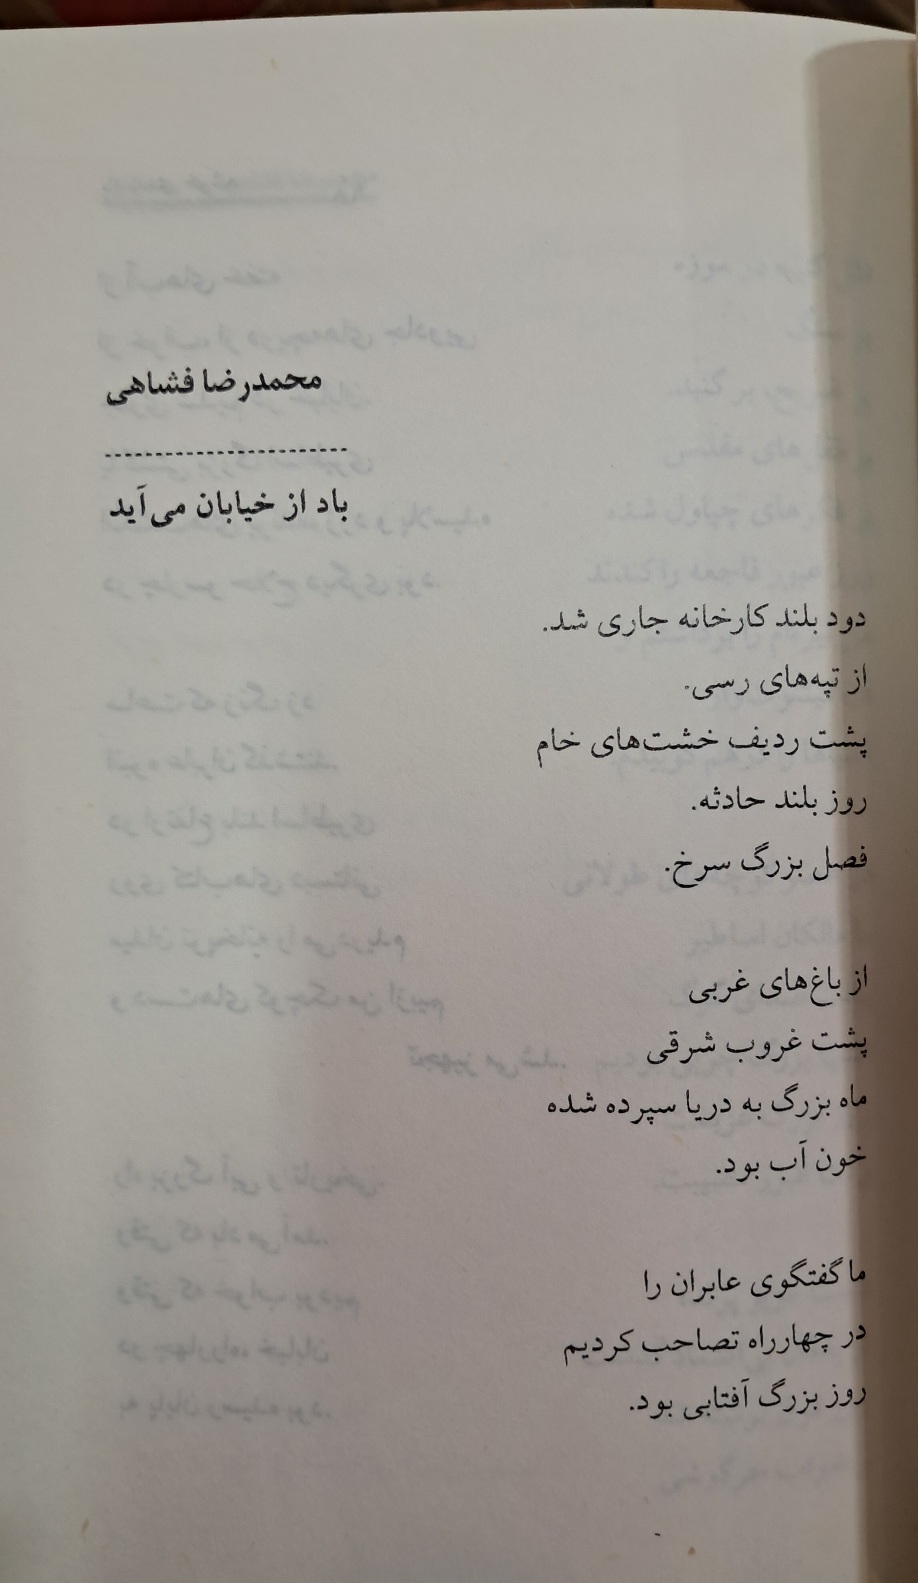 محمدرضا فشاهی
باد از خیابان می‌آید
دود بلند کارخانه جاری شد.
از تپه‌های رسی.
پشت ردیف خشت‌های خام
روز بلند حادثه.
فصل بزرگ سرخ.
از باغ‌های غربی
پشت غروب شرقی
ماه بزرگ به دریا سپرده شده
خون آب بود.
ما گفتگوی عابران را
در چهارراه تصاحب کردیم
روز بزرگ آفتابی بود.